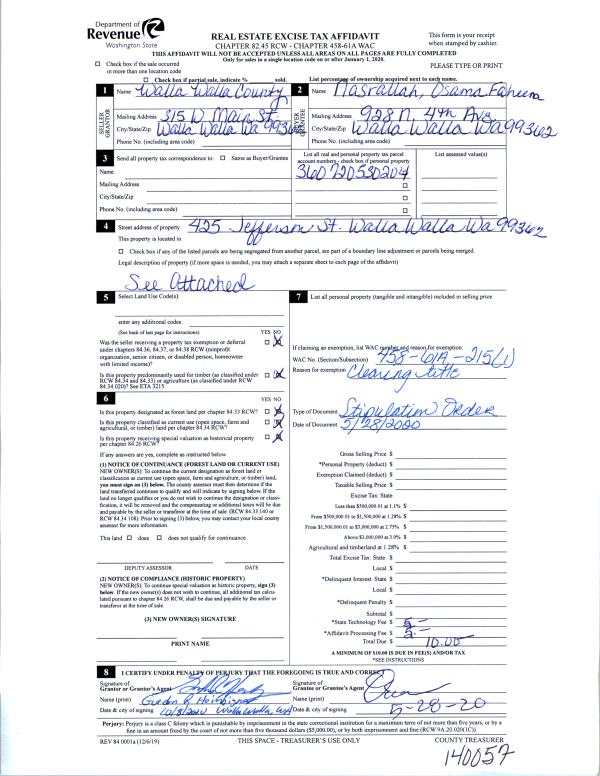 Department of
Revenue
Washington State
REAL ESTATE EXCISE TAX AFFIDAVIT
CHAPTER 82.45 RCW - CHAPTER 458-61A WAC
THIS AFFIDAVIT WILL NOT BE ACCEPTED UNLESS ALL AREAS ON ALL PAGES ARE FULLY COMPLETED
Only for sales in a single location code on or after January 1, 2020.
This form is your receipt
when stamped by cashier.
PLEASE TYPE OR PRINT
☐ Check box if the sale occurred
in more than one location code
☐ Check box if partial sale, indicate % sold.
List percentage of ownership acquired next to each name.
1 Name Walla Walla County
SELLER
GRANTOR
Mailing Address 315 W Main St.
City/State/Zip Walla Walla Wa 99362
Phone No. (including area code)
2 Name Nasrallah, Osama Faheem
BUYER
GRANTEE
Mailing Address 928 N. 4th Ave
City/State/Zip Walla Walla Wa 99362
Phone No. (including area code)
3 Send all property tax correspondence to: ☐ Same as Buyer/Grantee
Name
Mailing Address
City/State/Zip
Phone No. (including area code)
List all real and personal property tax parcel
account numbers - check box if personal property
360720530204 ☐
☐
☐
☐
List assessed value(s)
4 Street address of property 425 Jefferson St. Walla Walla Wa 99362
This property is located in
☐ Check box if any of the listed parcels are being segregated from another parcel, are part of a boundary line adjustment or parcels being merged.
Legal description of property (if more space is needed, you may attach a separate sheet to each page of the affidavit)
See Attached
5 Select Land Use Code(s)
enter any additional codes:
(See back of last page for instructions)
YES NO
Was the seller receiving a property tax exemption or deferral
under chapters 84.36, 84.37, or 84.38 RCW (nonprofit
organization, senior citizen, or disabled person, homeowner
with limited income)?
Is this property predominantly used for timber (as classified under
RCW 84.34 and 84.33) or agriculture (as classified under RCW
84.34.020)? See ETA 3215
6 YES NO
Is this property designated as forest land per chapter 84.33 RCW?
Is this property classified as current use (open space, farm and
agricultural, or timber) land per chapter 84.34 RCW?
Is this property receiving special valuation as historical property
per chapter 84.26 RCW?
If any answers are yes, complete as instructed below.
(1) NOTICE OF CONTINUANCE (FOREST LAND OR CURRENT USE)
NEW OWNER(S): To continue the current designation as forest land or
classification as current use (open space, farm and agriculture, or timber) land,
you must sign on (3) below. The county assessor must then determine if the
land transferred continues to qualify and will indicate by signing below. If the
land no longer qualifies or you do not wish to continue the designation or classifi-
cation, it will be removed and the compensating or additional taxes will be due
and payable by the seller or transferor at the time of sale. (RCW 84.33.140 or
RCW 84.34.108). Prior to signing (3) below, you may contact your local county
assessor for more information.
This land ☐ does ☐ does not qualify for continuance.
DEPUTY ASSESSOR DATE
(2) NOTICE OF COMPLIANCE (HISTORIC PROPERTY)
NEW OWNER(S): To continue special valuation as historic property, sign (3)
below. If the new owner(s) does not wish to continue, all additional tax calcu-
lated pursuant to chapter 84.26 RCW, shall be due and payable by the seller or
transferor at the time of sale.
(3) NEW OWNER(S) SIGNATURE
PRINT NAME
7 List all personal property (tangible and intangible) included in selling price.
If claiming an exemption, list WAC number and reason for exemption:
WAC No. (Section/Subsection) 458-61A-215(1)
Reason for exemption
Clearing title
Type of Document Stipulation Order
Date of Document 5/28/2020
Gross Selling Price $
*Personal Property (deduct) $
Exemption Claimed (deduct) $
Taxable Selling Price $
Excise Tax: State
Less than $500,000.01 at 1.1% $
From $500,000.01 to $1,500,000 at 1.28% $
From $1,500,000.01 to $3,000,000 at 2.75% $
Above $3,000,000 at 3.0% $
Agricultural and timberland at 1.28% $
Total Excise Tax: State $
Local $
*Delinquent Interest: State $
Local $
*Delinquent Penalty $
Subtotal $
*State Technology Fee $ 5.-
*Affidavit Processing Fee $ 5.-
Total Due $ 10.00
A MINIMUM OF $10.00 IS DUE IN FEE(S) AND/OR TAX
*SEE INSTRUCTIONS
8 I CERTIFY UNDER PENALTY OF PERJURY THAT THE FOREGOING IS TRUE AND CORRECT
Signature of
Grantor or Grantor's Agent
Name (print)
Date & city of signing Walla Walla, WA
Signature of
Grantee or Grantee's Agent
Name (print)
Date & city of signing 5-28-20
Perjury: Perjury is a class C felony which is punishable by imprisonment in the state correctional institution for a maximum term of not more than five years, or by a
fine in an amount fixed by the court of not more than five thousand dollars ($5,000.00), or by both imprisonment and fine (RCW 9A.20.020(1C)).
REV 84 0001a (12/6/19)
THIS SPACE - TREASURER'S USE ONLY
COUNTY TREASURER
140057